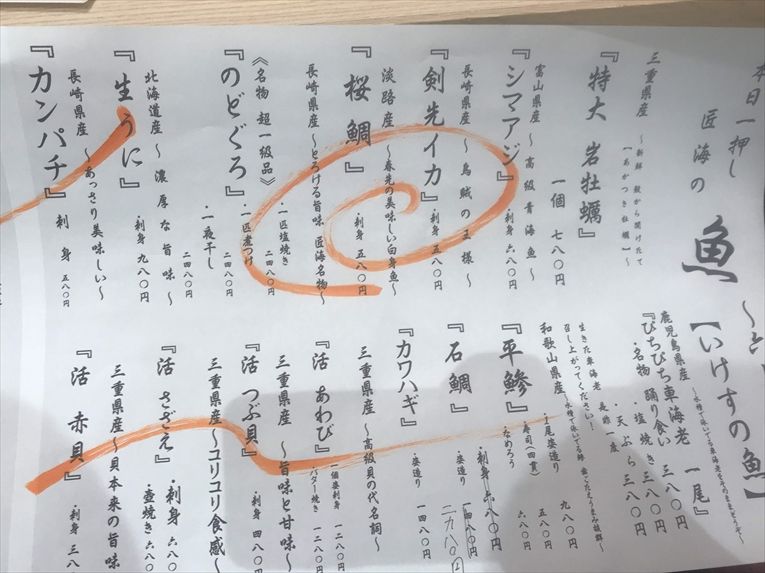 本日一押し
匠海の
魚
三重県産 ～新鮮 殻から開けたて
【あかつき牡蠣】～
『特大 岩牡蠣』
一個 七八〇円
富山県産 ～高級青海魚～
『シマアジ』
・刺身 六八〇円
長崎県産 ～烏賊の王様～
『剣先イカ』
・刺身 五八〇円
淡路産 ～春先の美味しい白身魚～
『桜鯛』
・刺身 五八〇円
長崎県産 ～とろける旨味 匠海名物～
《名物 超一級品》
『のどぐろ』
・一匹塩焼き 二四八〇円
・一匹煮つけ 二四八〇円
・一夜干し 二四八〇円
北海道産 ～濃厚な旨味～
『生うに』
・刺身 九八〇円
長崎県産 ～あっさり美味しい～
『カンパチ』
刺身 五八〇円
【いけすの魚】
鹿児島県産
『ぴちぴち車海老 一尾』
・名物 踊り食い 三八〇円
・塩焼き 三八〇円
・天ぷら 三八〇円
生きた車海老 是非一度
召し上がってください！
和歌山県産
『平鯵』
・一尾姿造り 九八〇円
・寿司(四貫) 五八〇円
・なめろう
・刺身 六八〇円
『石鯛』
・姿造り
『カワハギ』
・姿造り 一四八〇円
三重県産 ～高級貝の代名詞～
『活 あわび』
・一個姿刺身 一二八〇円
・バター焼き 一二八〇円
三重県産 ～旨味と甘味～
『活 つぶ貝』
・刺身 四八〇円
三重県産 ～コリコリ食感～
『活 さざえ』
・刺身 六八〇
・壺焼き 六八〇
三重県産 ～貝本来の旨味
『活 赤貝』
・刺身 三八